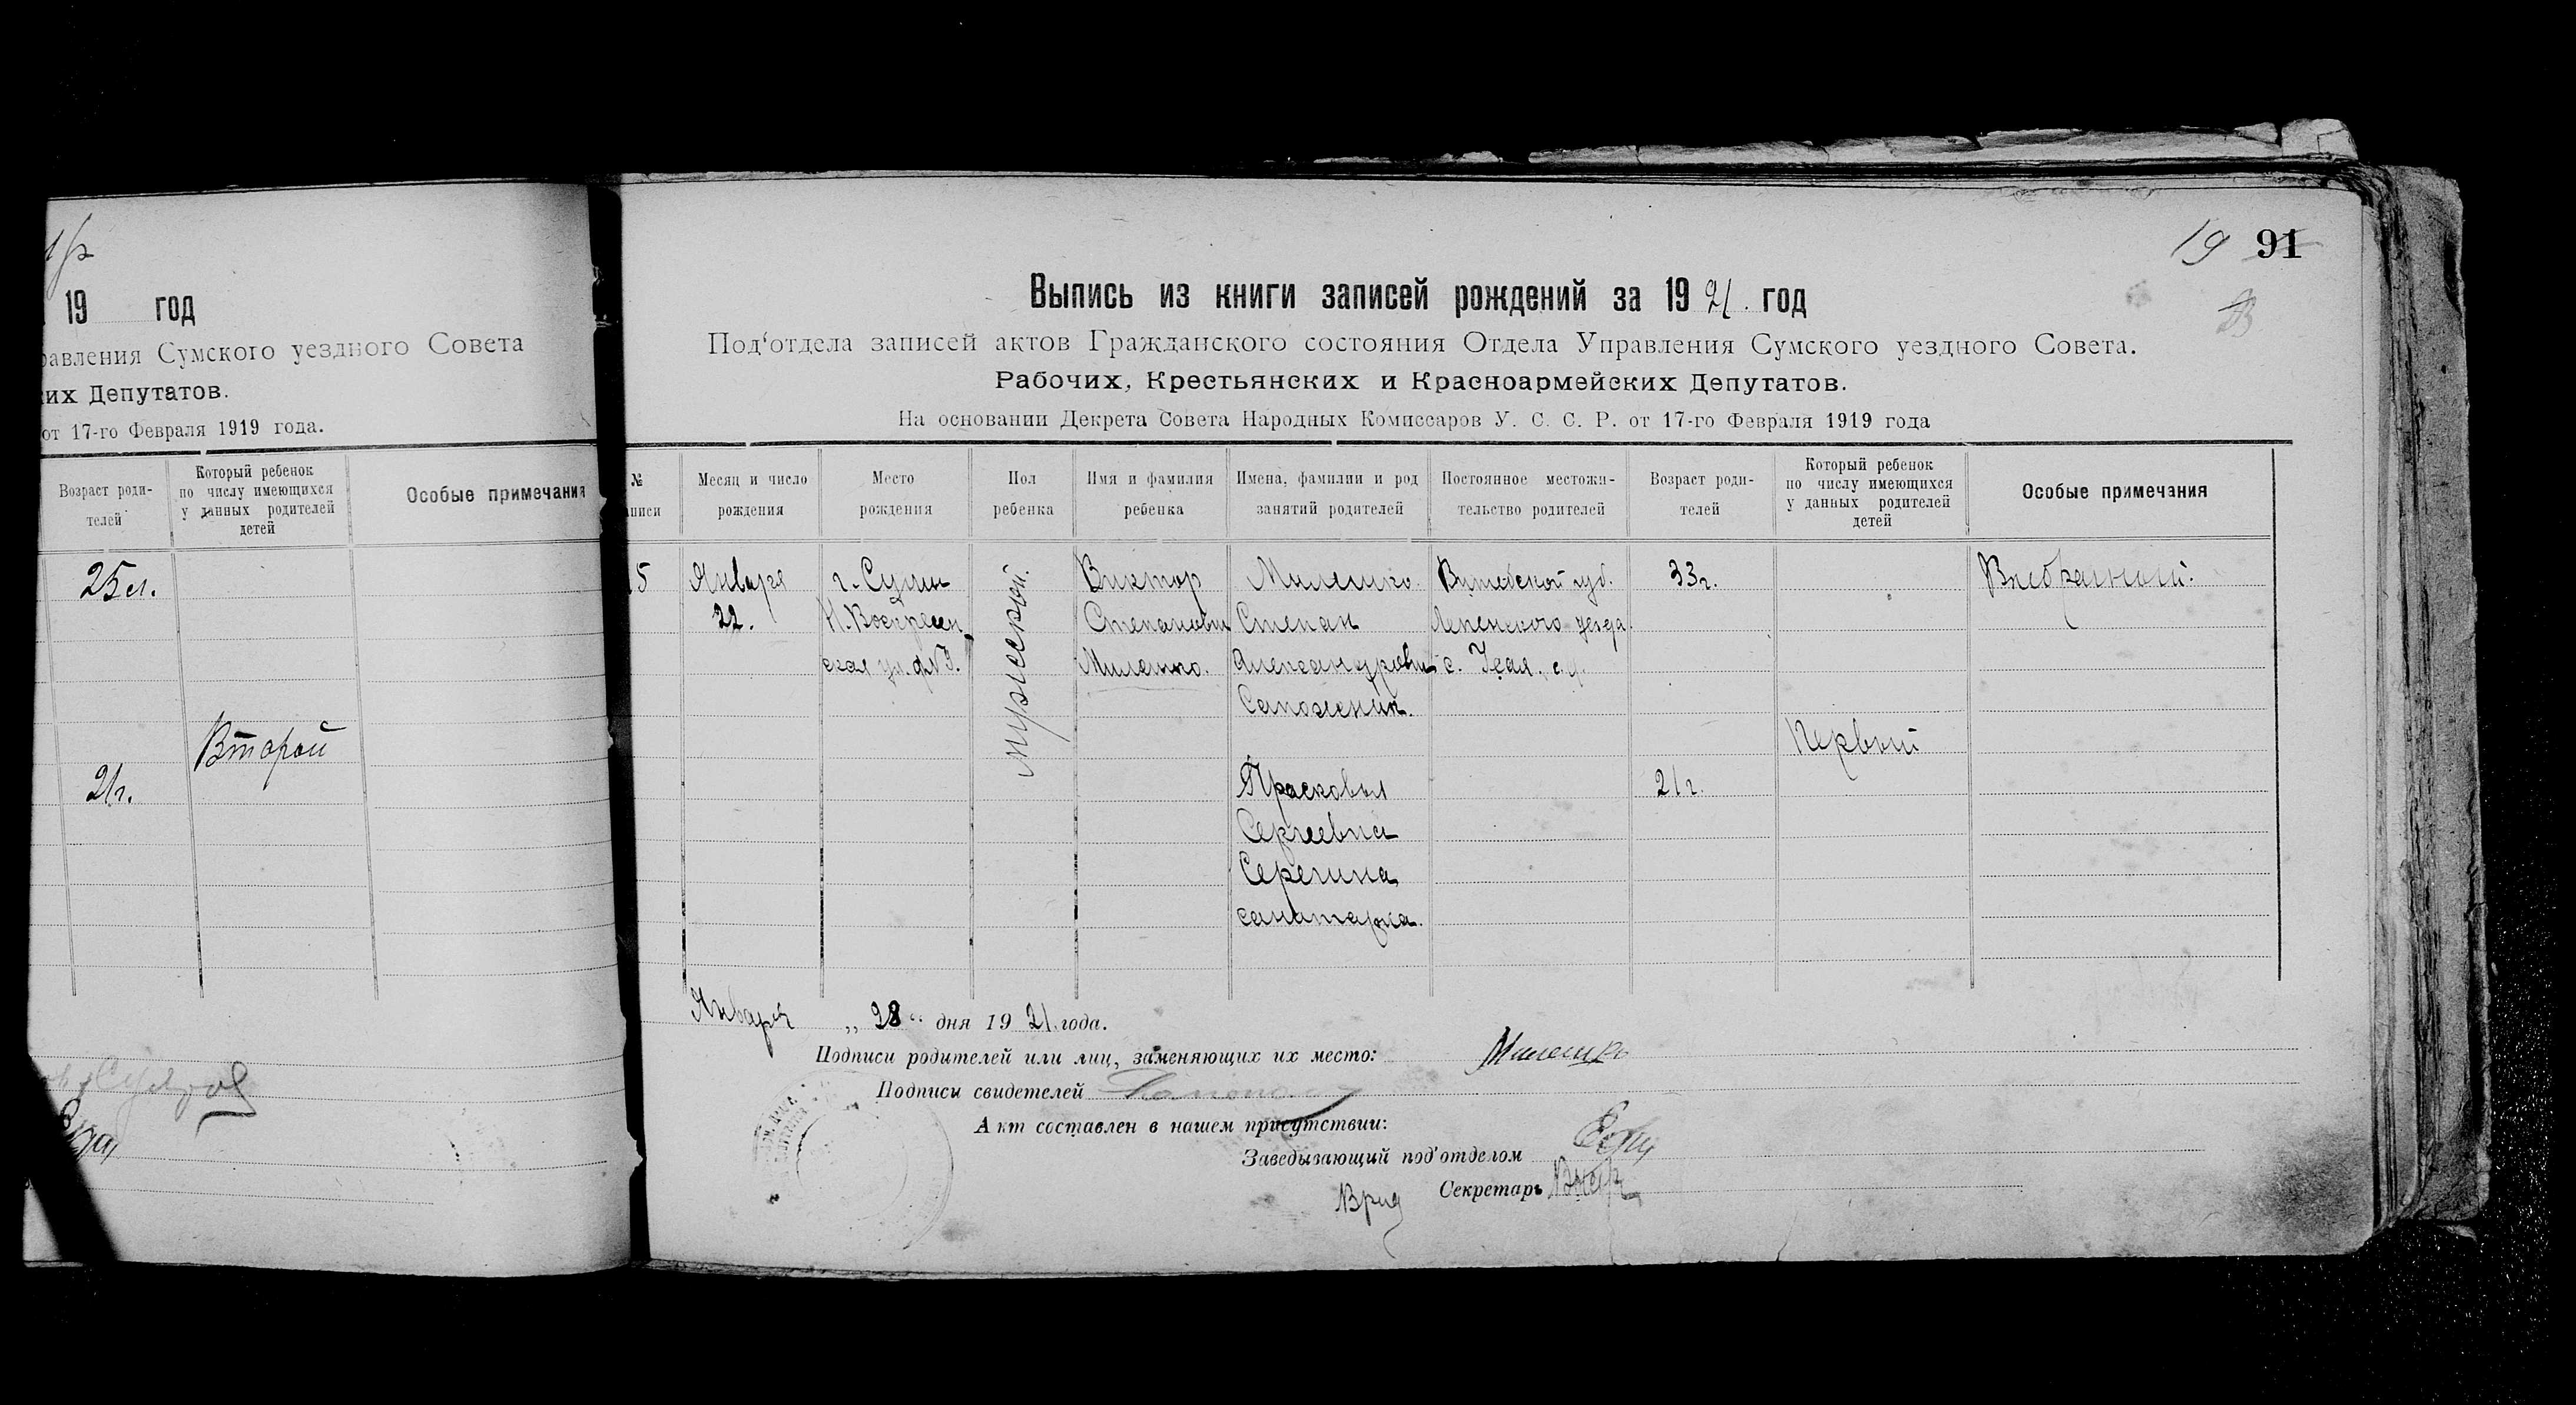 19 год
равления Сумского уездного Совета
их Депутатов.
от 17-го Февраля 1919 года.
Возраст роди-
телей
Который ребенок
по числу имеющихся
у данных родителей
детей
Особые примечания
25 л.
Второй
21 г.
19 91
Выпись из книги записей рождений за 1921. год
Под'отдела записей актов Гражданского состояния Отдела Управления Сумского уездного Совета.
Рабочих, Крестьянских и Красноармейских Депутатов.
На основании Декрета Совета Народных Комиссаров У. С. С. Р. от 17-го Февраля 1919 года
№
писи
Месяц и число
рождения
Место
рождения
Пол
ребенка
Имя и фамилия
ребенка
Имена, фамилии и род
занятий родителей
Постоянное местожи-
тельство родителей
Возраст роди-
телей
Который ребенок
по числу имеющихся
у данных родителей
детей
Особые примечания
5
Января
22.
г. Сумы
Н. Воскресен
ская ул. д№3.
мужеский.
Виктор
Степанович
Милешко.
Милешко
Степан
Александрович
Сапожник.
Прасковья
Сергеевна
Серегина
санитарка.
Витебской губ.
Лепенского уезда
с.
33 г.
21 г.
Первый
Января „28“ дня 1921. года.
Подписи родителей или лиц, заменяющих их место: Милешко
Подписи свидетелей
Акт составлен в нашем присутствии:
Заведывающий под'отделом
Врид Секретарь